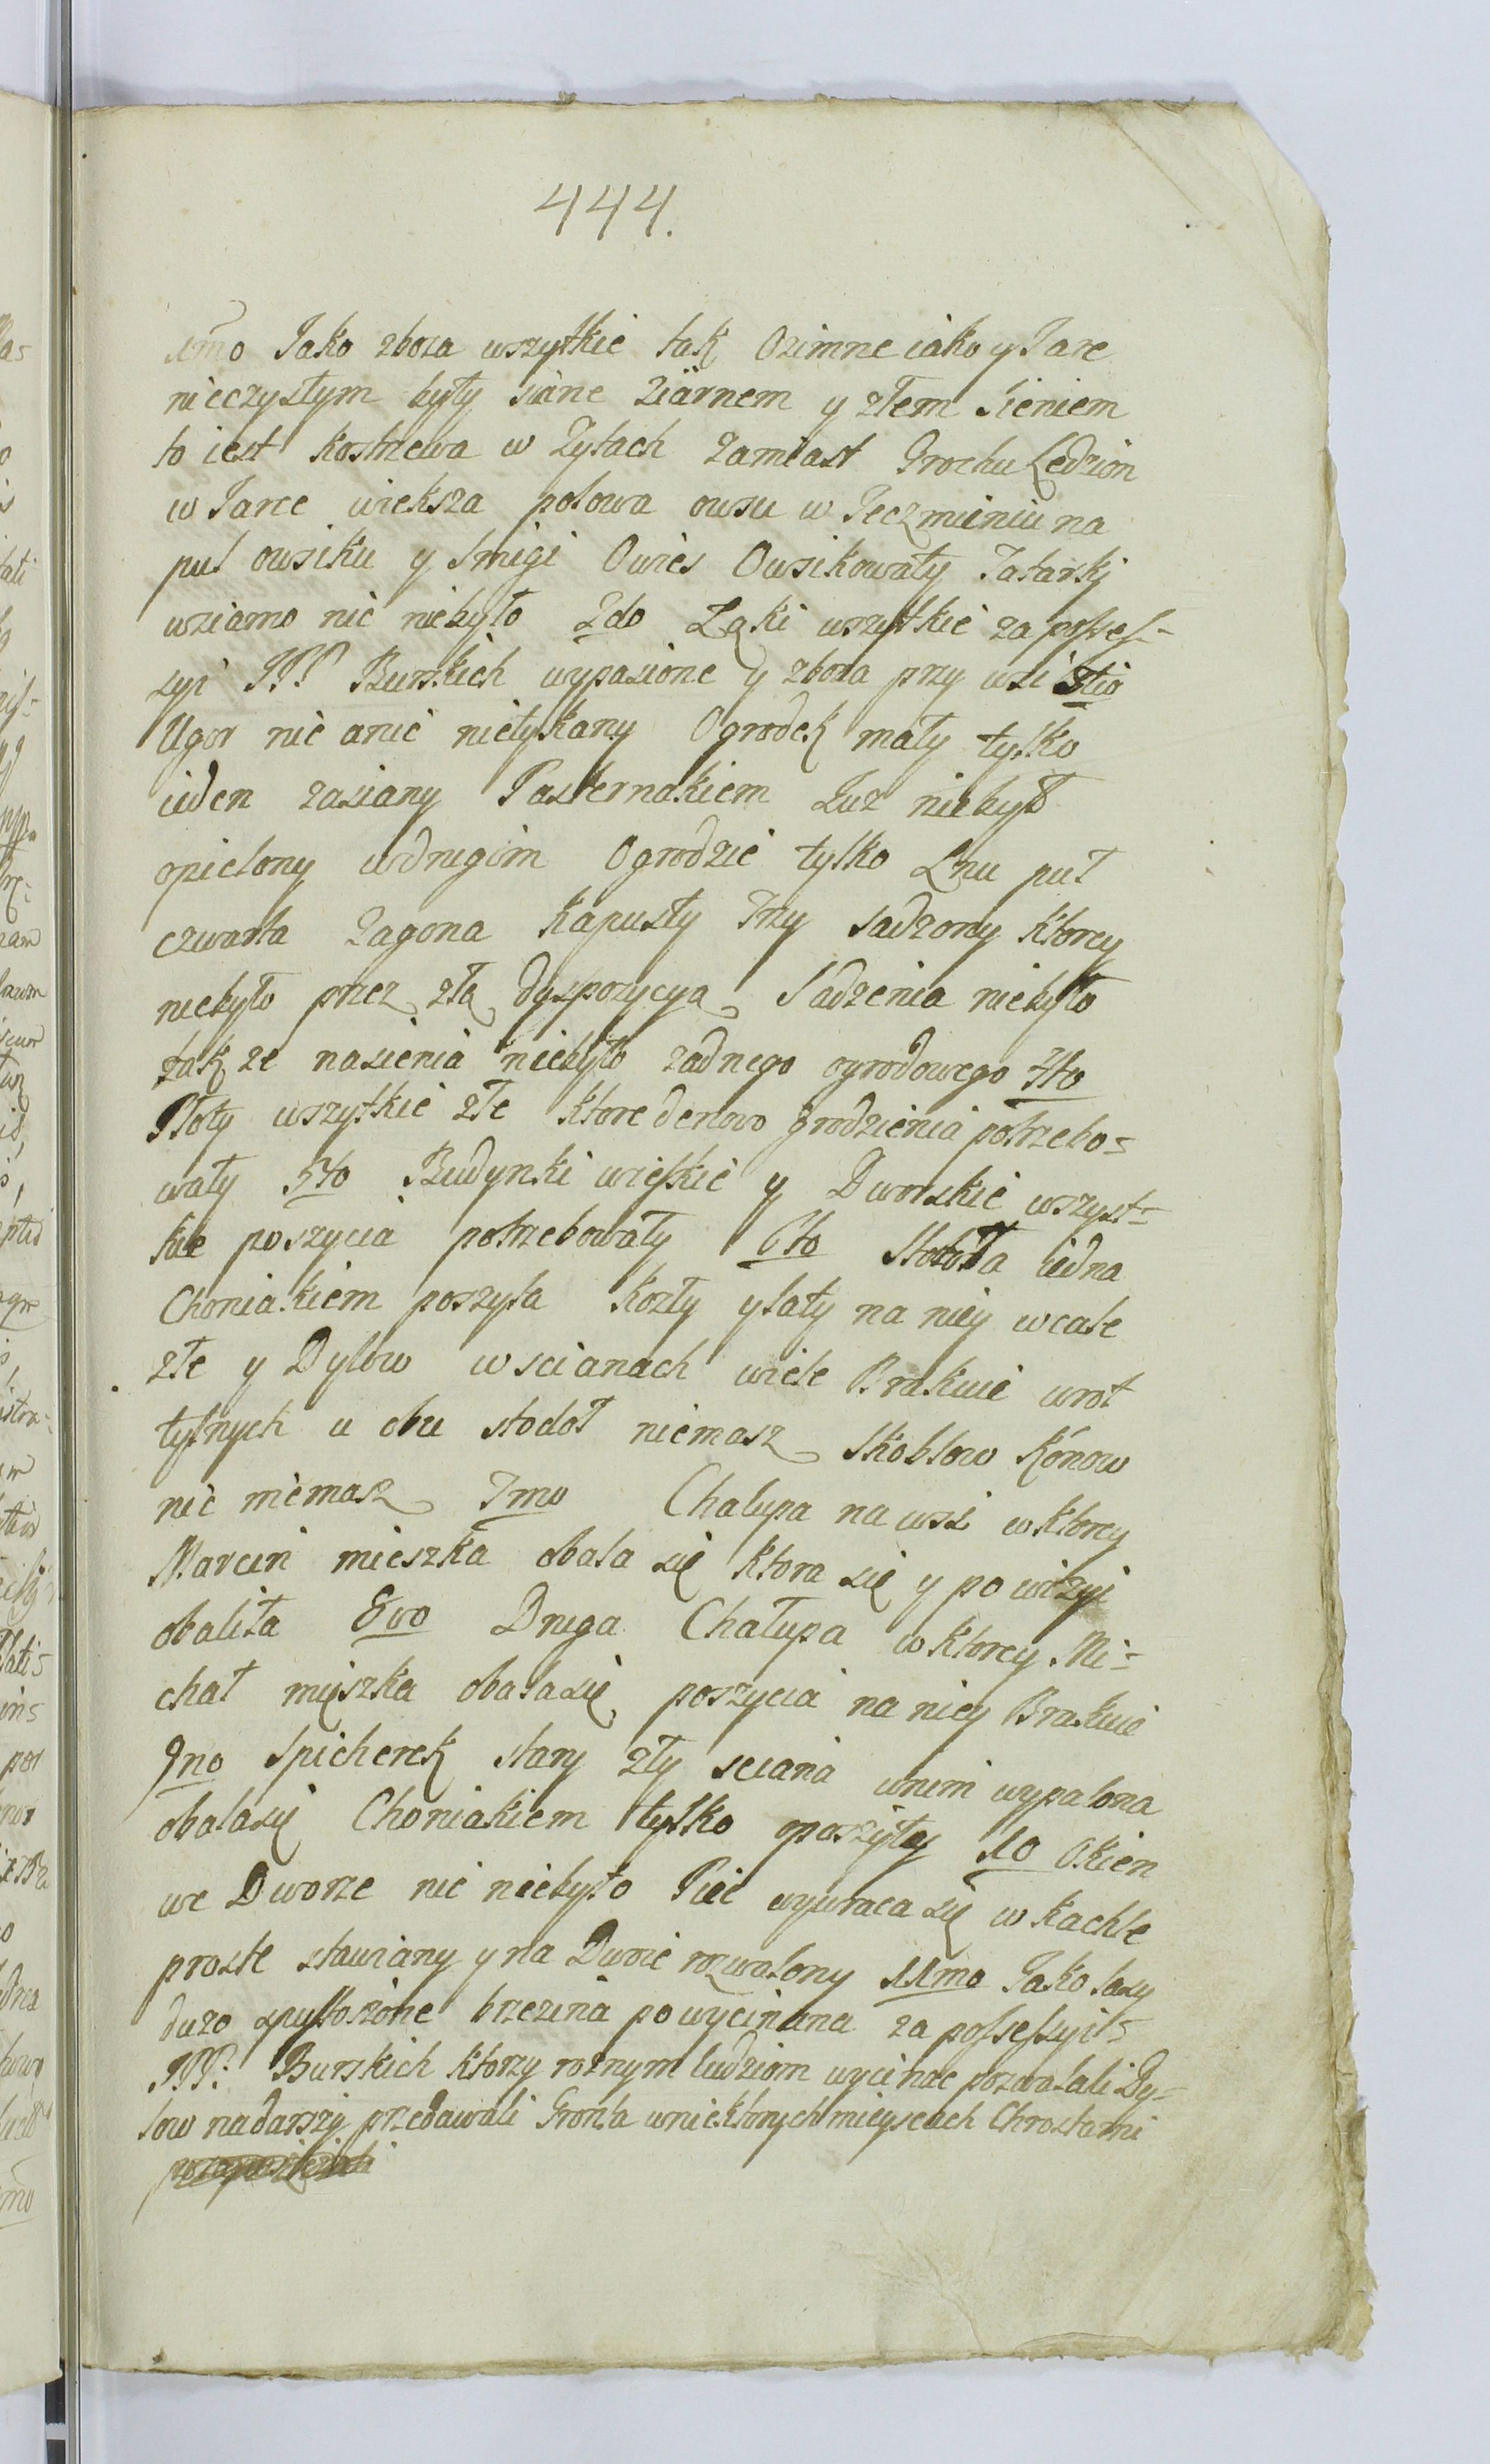 444.
1mo Jako zboza wszytkie tak Ozimne iako y Jare
nieczystym były siane Ziarnem y złem sieniem
to iest kostrzewa w Zytach zamiast Grochu Ledzion
w Jarce wieksza połowa owsu w Jeczmieniu na
puł owsiku y smigi Owies Owsikowaty Tatarki
wziarno nic niebyło 2do Łąki wszytkie za posses=
syi JPP Burskich wypasione y zboza przy wsi 3tio
Ugor nic a nic nietykany Ogrodek mały tylko
ieden zasiany Pasternakiem Juz niebył
opielony w drugim Ogrodzie tylko Lnu puł
czwarta Zagona Kapusty Trzy sadzony ktorey
niebyło przez złą dyspozycyą Sadzenia niebyło
tak ze nasienia niebyło zadnego ogrodowego 4to
Płoty wszytkie złe ktore denowo grodzienia potrzebo=
wały 5to Budynki wieskie y Dworskie wszyst=
kie poszycia potrzebowały 6to Stodoła iedna
Choniakiem poszyta Kozły y łaty na niey wcale
złe y Dylow w scianach wiele Brakuie wrot
tylnych u obu stodoł niemasz Skoblow Kónow
nic niemasz 7mo Chalupa na wsi w ktorey
Marcin mieszka obala się ktora się y po wizyi
obaliła 8vo Druga Chałupa w ktorey Mi=
chał mięszka obala się poszycia na niey Brakuie
9no Spicherek stary zły sciana wnim wypalona
obala się Choniakiem tylko oposzyty 10 Okien
we Dworze nic niebyło Piec wywraca się w kachle
proste stawiany y na Dworze rozwalony 11mo Jako lasy
duzo spustoszone brzezina powycinana za possessyi=
JPP. Burskich ktorzy roznym ludziom wycinac pozwalali Dy=
low nadarszy przedawali Gronta w niektorych mieyscach Chrostami